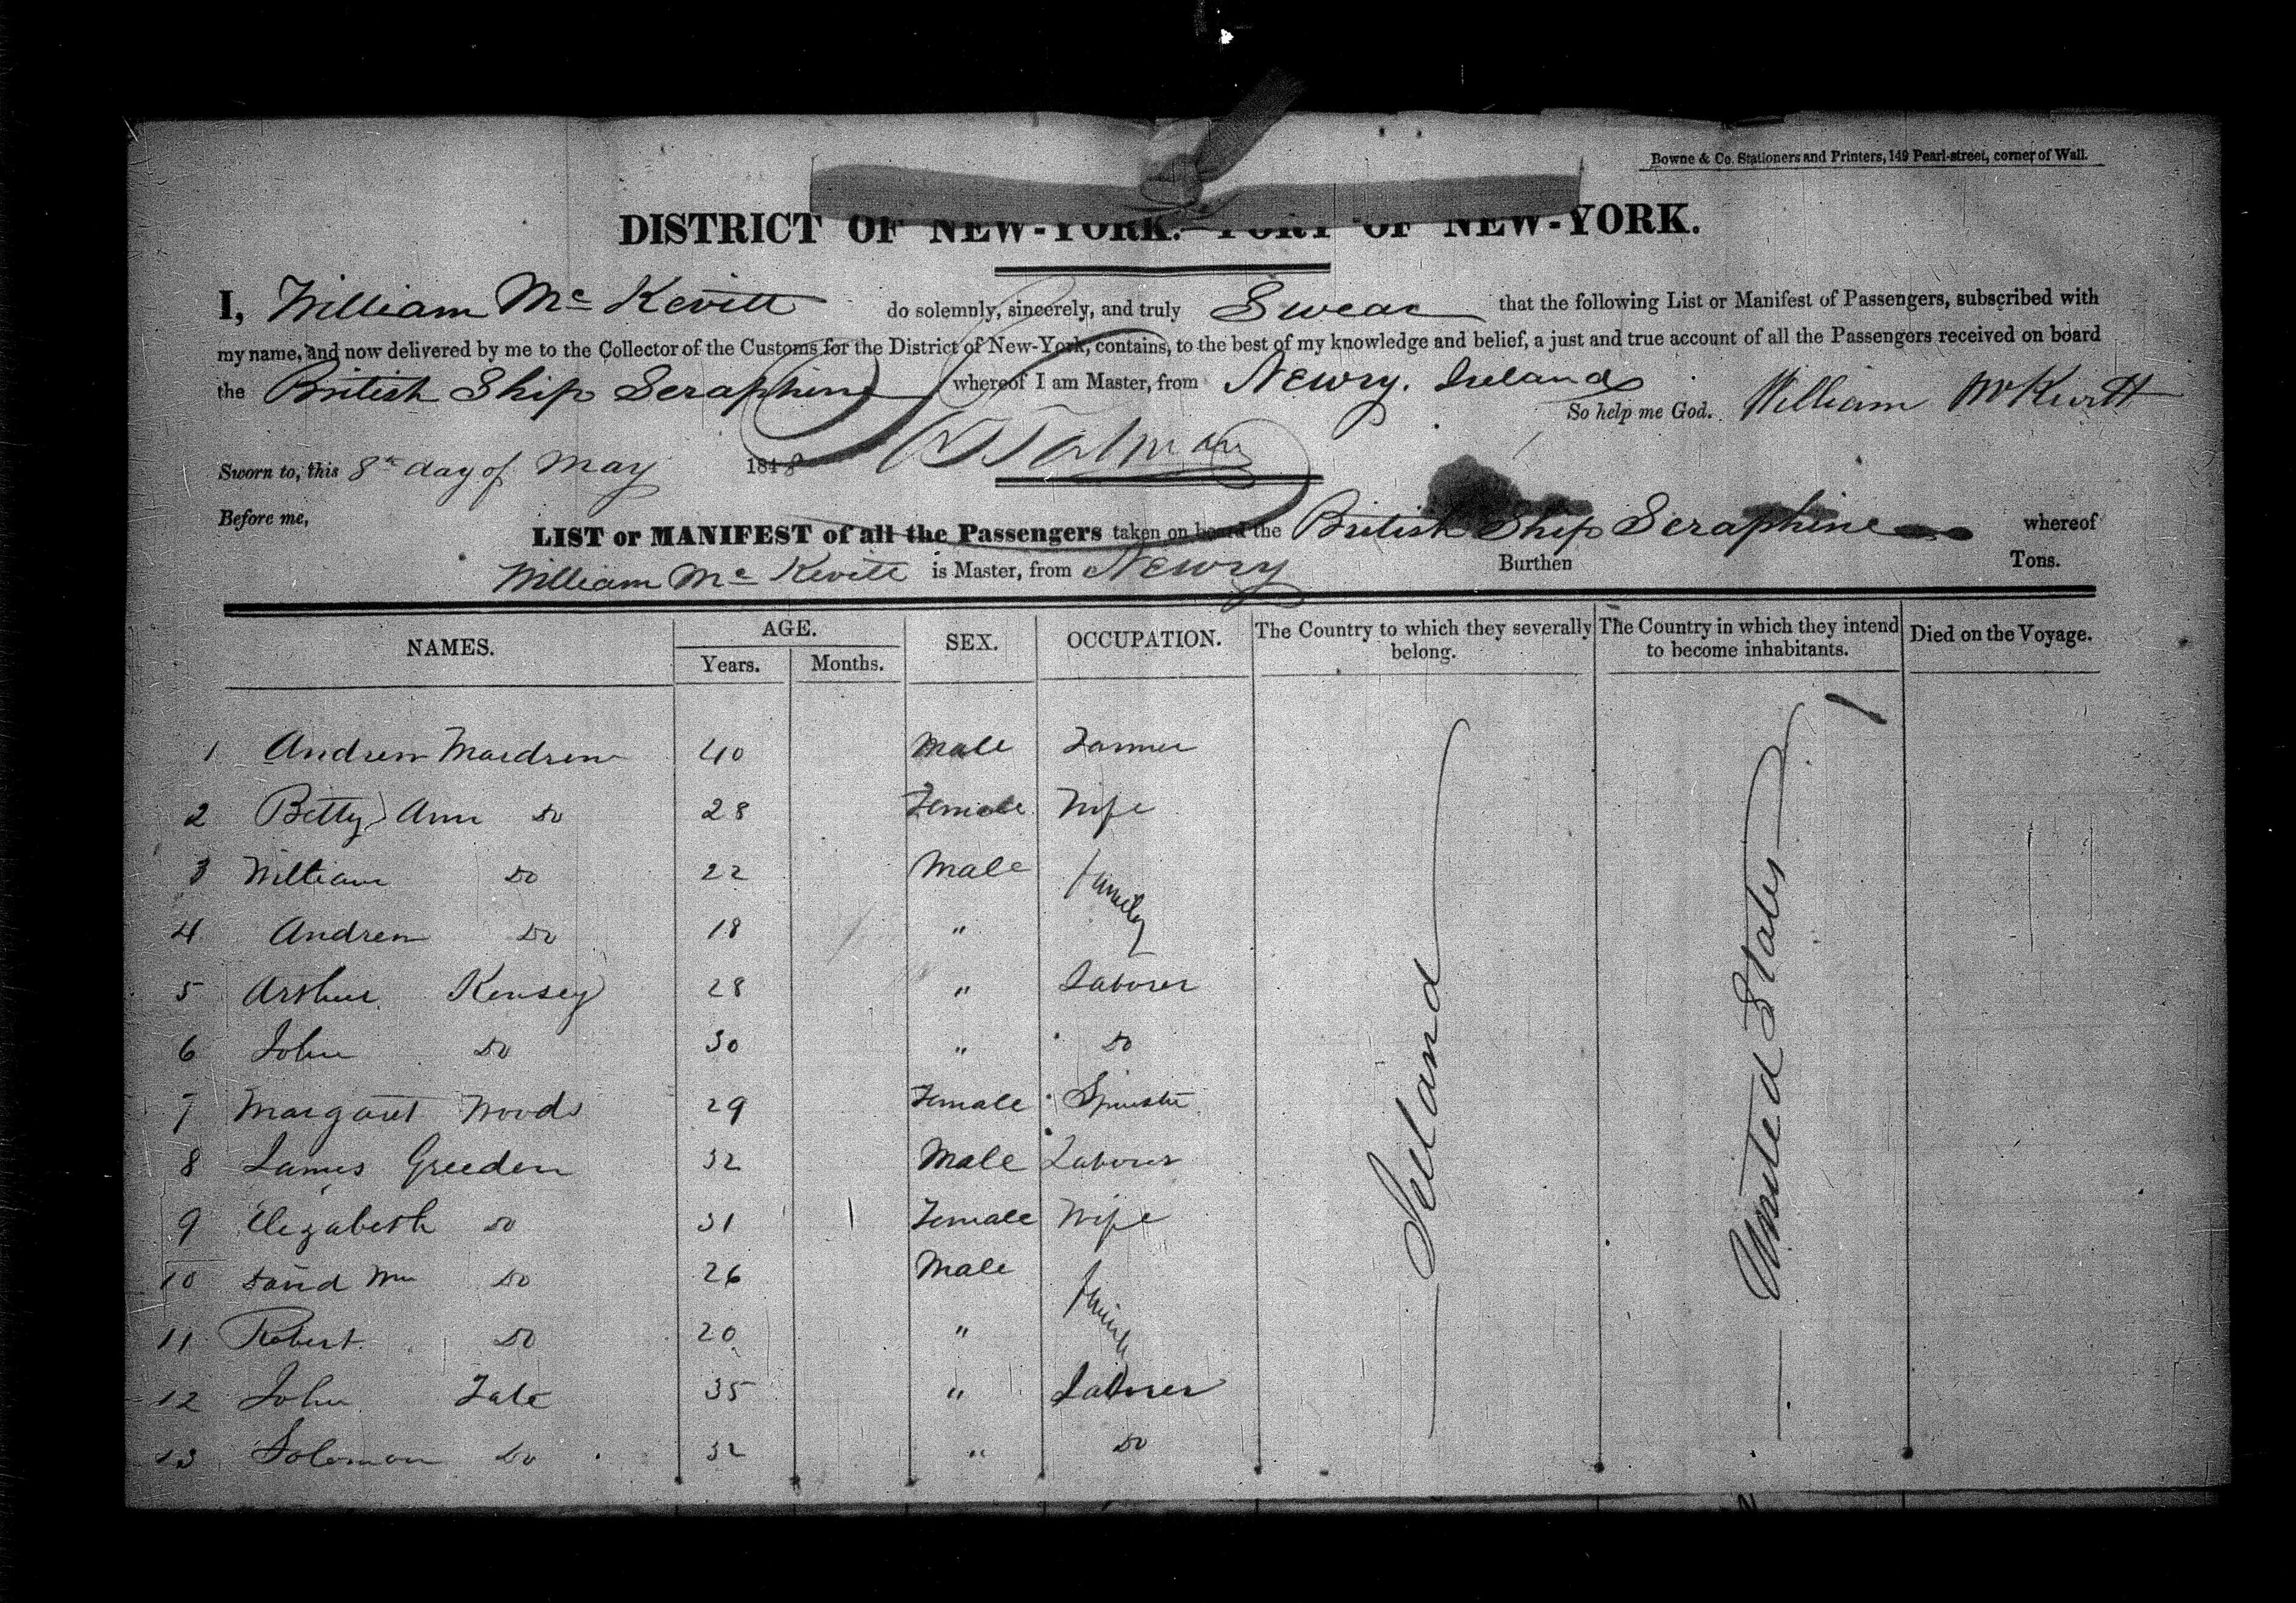 Bowne & Co. Stationers and Printers, 149 Pearl-street, corner of Wall.
DISTRICT OF NEW-YORK.—PORT OF NEW-YORK.
I, William Mc Kevitt do solemnly, sincerely, and truly Swear that the following List or Manifest of Passengers, subscribed with
my name, and now delivered by me to the Collector of the Customs for the District of New-York, contains, to the best of my knowledge and belief, a just and true account of all the Passengers received on board
the British Ship Seraphine whereof I am Master, from Newry, Ireland
So help me God. William McKevitt
Sworn to, this 8th day of May 1848
Before me,
LIST or MANIFEST of all the Passengers taken on board the British Ship Seraphine whereof
William Mc Kevitt is Master, from Newry Burthen Tons.
NAMES. AGE. Years. Months. SEX. OCCUPATION. The Country to which they severally belong. The Country in which they intend to become inhabitants. Died on the Voyage.
1 Andrew 40 Male Farmer
2 Betty Ann Do 28 Female Wife
3 William Do 22 Male family
4 Andrew Do 18 "
5 Arthur Kensey 28 " Laborer
6 John Do 30 " Do
7 Margaret Woods 29 Female Spinster
8 James Greeden 32 Male Laborer
9 Elizabeth Do 31 Female Wife
10 David Wm Do 26 Male family
11 Robert Do 20 "
12 John Tate 35 " Laborer
13 Solomon Do 32 " Do
Ireland
United States